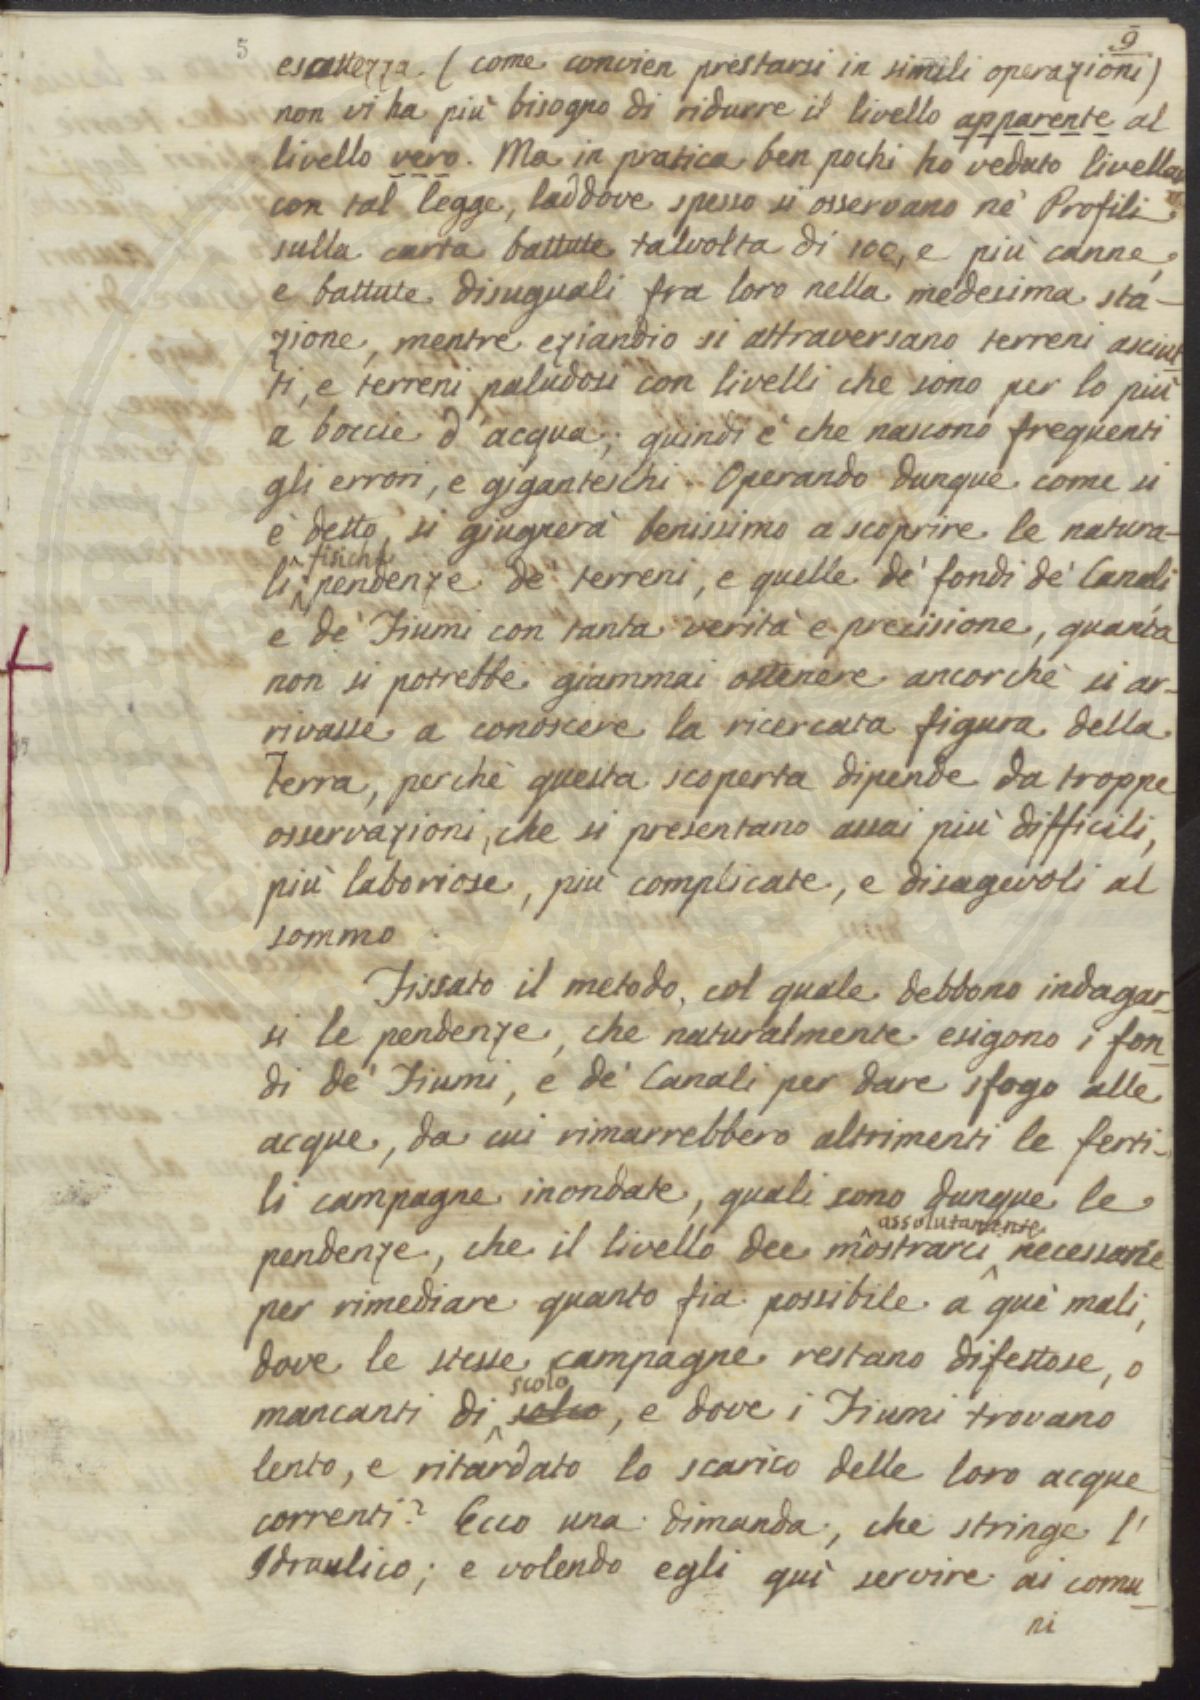 5
9
esattezza. (come convien prestarsi in simili operazioni)
non vi ha più bisogno di ridurre il livello apparente al
livello vero. Ma in pratica ben pochi ho veduto livellar
con tal legge, laddove spesso si osservano nè Profili
sulla carta battute talvolta di 100, e più canne,
e battute disuguali fra loro nella medesima sta-
zione, mentre eziandio si attraversano terreni asciut
ti, e terreni paludosi con livelli che sono per lo più
a boccie d'acqua; quindi è che nascono frequenti
gli errori, e giganteschi. Operando dunque come si
è detto, si giugnerà benissimo a scoprire le natura-
fisiche
li pendenze de' terreni, e quelle de' fondi de' Canali
e de' Fiumi con tanta verità e precisione, quanta
non si potrebbe giammai ottenere ancorchè si ar-
rivasse a conoscere la ricercata figura della
Terra, perchè questa scoperta dipende da troppe
osservazioni, che si presentano assai più difficili,
più laboriose, più complicate, e disagevoli al
sommo.
Fissato il metodo, col quale debbono indagar-
si le pendenze, che naturalmente esigono i fon-
di de' Fiumi, e de' Canali per dare sfogo alle
acque, da cui rimarrebbero altrimenti le ferti-
li campagne inondate, quali sono dunque le
assolutamente
pendenze, che il livello dee mostrarci necessarie
per rimediare quanto fia possibile a què mali,
dove le stesse campagne restano difettose, o
scolo
mancanti di solco, e dove i Fiumi trovano
lento, e ritardato lo scarico delle loro acque
correnti? Ecco una dimanda, che stringe l'
Idraulico; e volendo egli quì servire ai comu-
ni